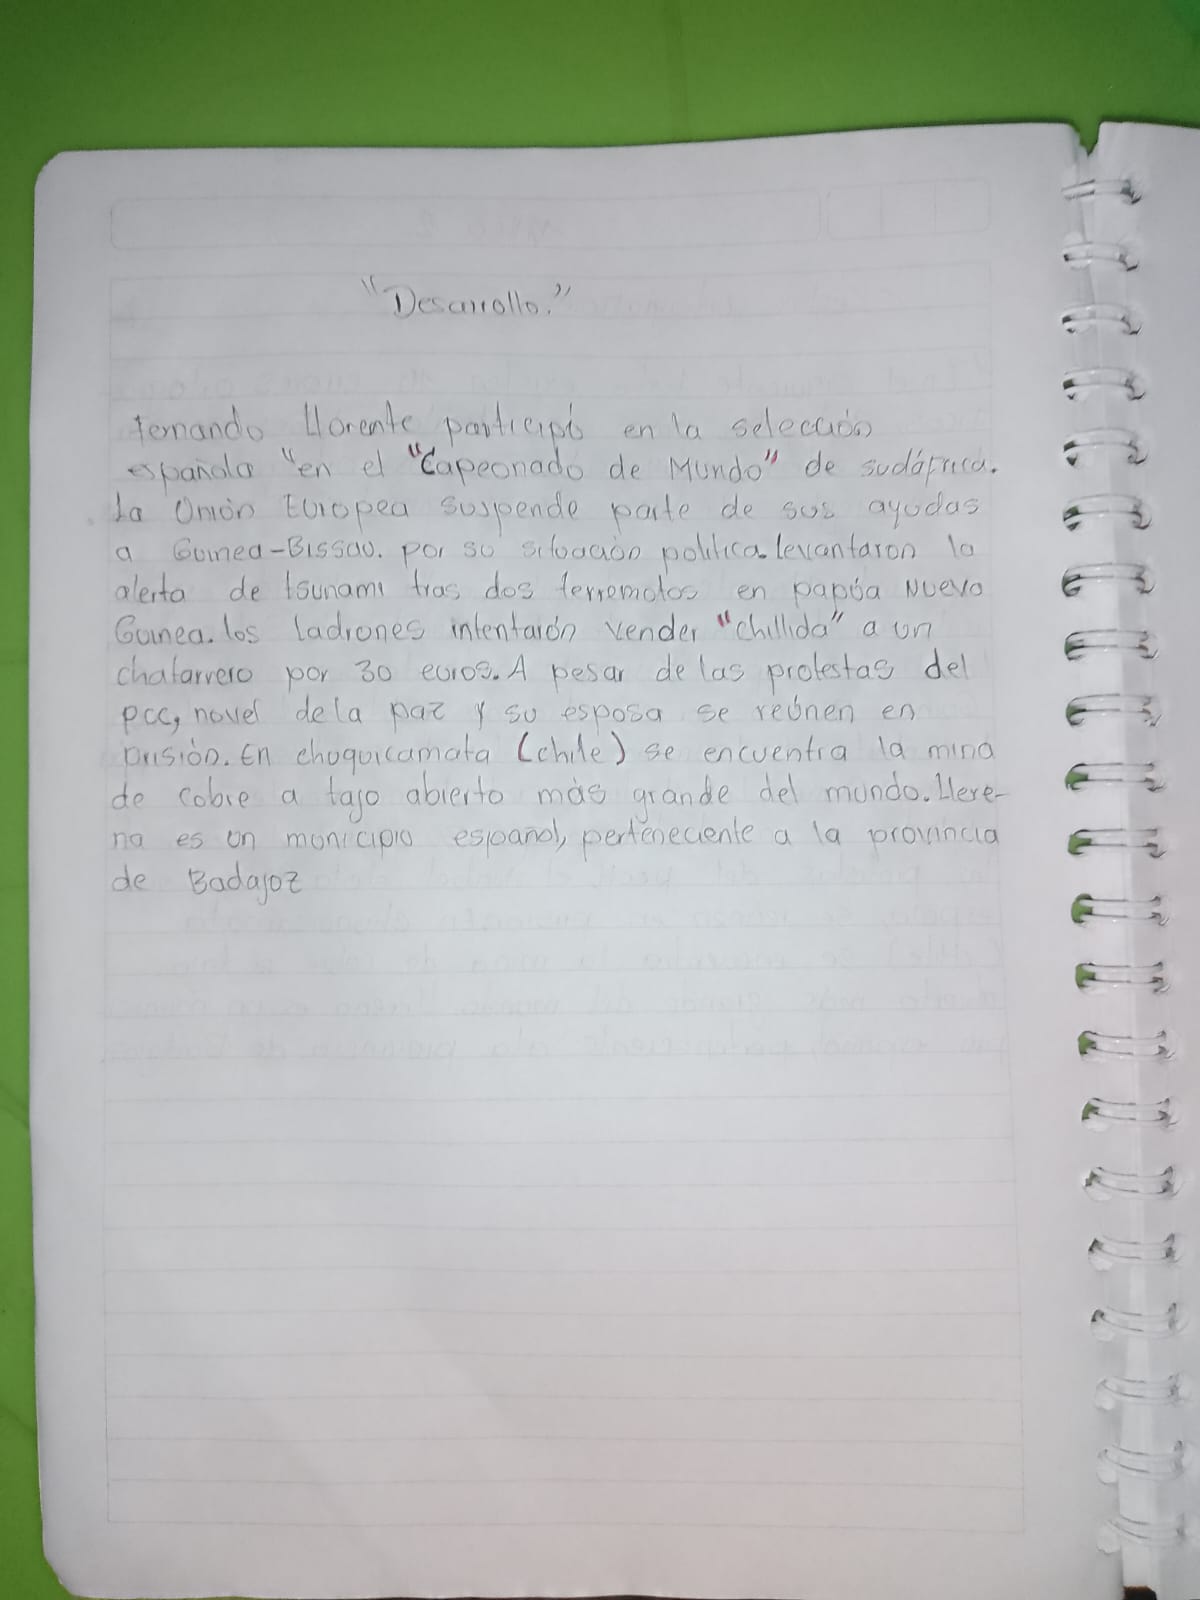 "Desarrollo."
Fernando Llorente participó en la selección
española "en el "Capeonado de Mundo" de sudáfrica.
La Unión Europea suspende parte de sus ayudas
a Guinea-Bissau. por su situación política. levantaron la
alerta de tsunami tras dos terremotos en papúa Nuevo
Guinea. los ladrones intentarón vender "chillida" a un
chatarrero por 30 euros. A pesar de las protestas del
pcc, novel de la paz y su esposa se reúnen en
prisión. En chuquicamata (chile) se encuentra la mina
de cobre a tajo abierto más grande del mundo. Llere-
na es un municipio español, perteneciente a la provincia
de Badajoz